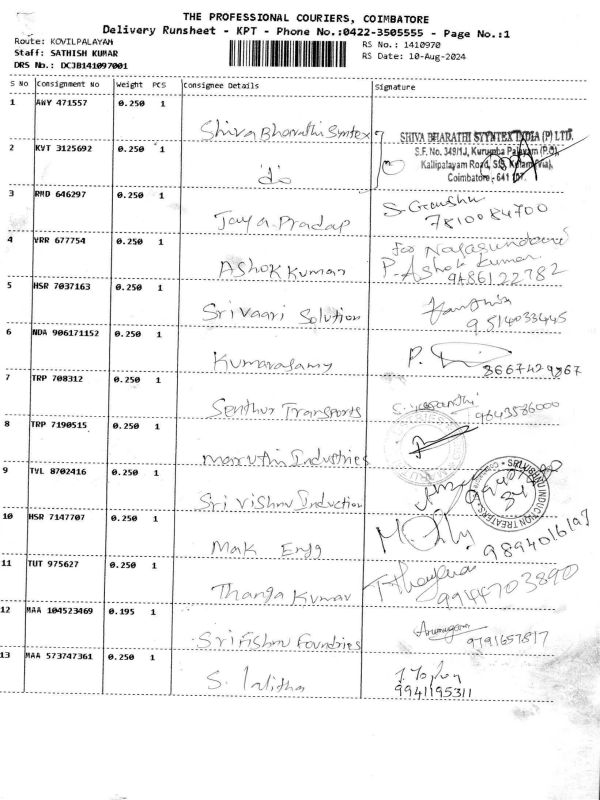 THE PROFESSIONAL COURIERS, COIMBATORE
Delivery Runsheet - KPT - Phone No.:0422-3505555 - Page No.:1
Route: KOVILPALAYAM
RS No.: 1410970
Staff: SATHISH KUMAR
RS Date: 10-Aug-2024
DRS No.: DCJB141097001
S No Consignment No Weight PCS Consignee Details Signature
1 AWY 471557 0.250 1 Shiva Bharathi Syntex
SHIVA BHARATHI SYYNTEX INDIA (P) LTD.
S.F. No. 349/1J, Kurumba Palayam (P.O),
Kallipalayam Road, S.S. Kulam (Via),
Coimbatore - 641 107.
2 KVT 3125692 0.250 1 do
3 RMD 646297 0.250 1 Jaya Pradap
7810084700
4 VRR 677754 0.250 1 Ashok Kumar
for
P. Ashok Kumar
9486122782
5 HSR 7037163 0.250 1 Srivaari Solution
9514033445
6 NDA 906171152 0.250 1 Kumarasamy
P.
7 TRP 708312 0.250 1 Senthur Transports
9843586000
8 TRP 7190515 0.250 1 Maruthi Industries
9 TVL 8702416 0.250 1 Sri Vishnu Induction
SRI VISHNU INDUCTION TREATERS
10 HSR 7147707 0.250 1 Mak Engg
9894016197
11 TUT 975627 0.250 1 Thanga Kumar
9944703890
12 MAA 104523469 0.195 1 Sri Fishnu Foundries
Arumugam
9791657817
13 MAA 573747361 0.250 1 S. Lalitha
9941195311